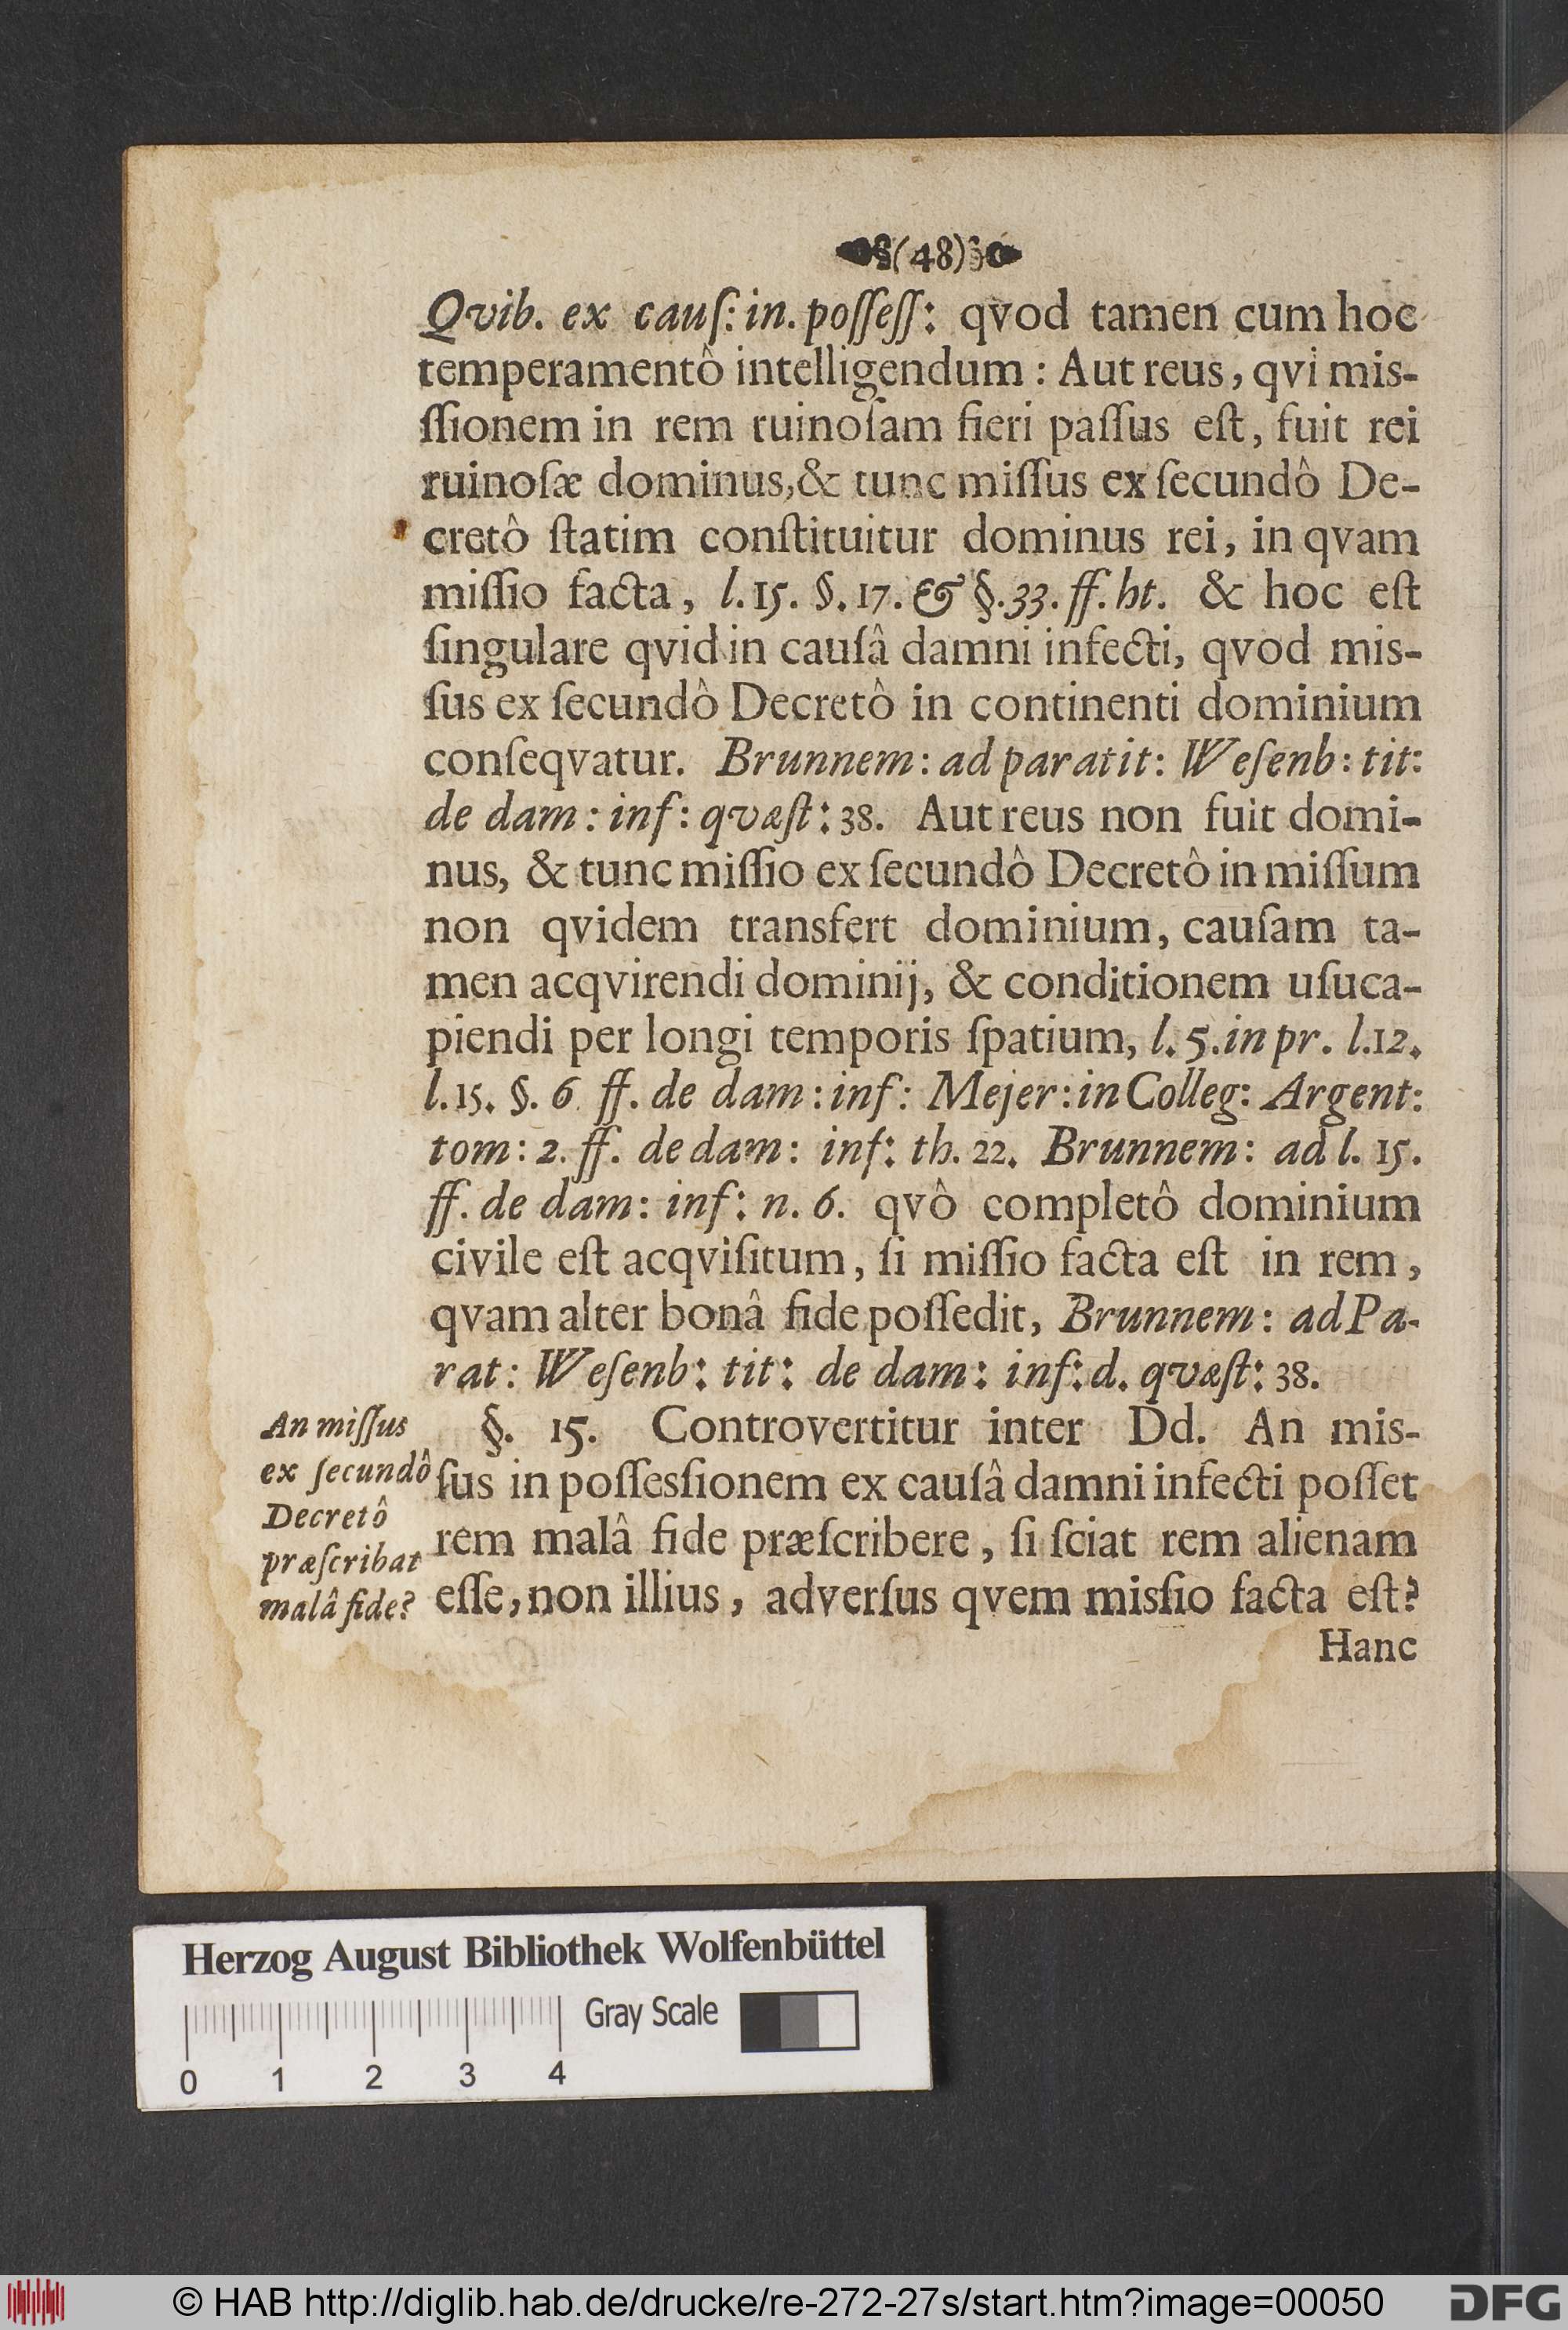 (48)
Qvib. ex cauſ: in. poſſeſſ: qvod tamen cum hoc
temperamentô intelligendum : Aut reus, qvi mis-
ſſionem in rem ruinoſam fieri paſſus eſt, fuit rei
ruinoſæ dominus, & tunc miſſus ex ſecundô De-
cretô ſtatim conſtituitur dominus rei, in qvam
miſſio facta, l. 15. §. 17. & §. 33. ff. ht. & hoc eſt
ſingulare qvid in cauſâ damni infecti, qvod mis-
ſus ex ſecundô Decretô in continenti dominium
conſeqvatur. Brunnem: ad paratit: Weſenb: tit:
de dam: inf: qvæſt: 38. Aut reus non fuit domi-
nus, & tunc miſſio ex ſecundô Decretô in miſſum
non qvidem transfert dominium, cauſam ta-
men acqvirendi dominij, & conditionem uſuca-
piendi per longi temporis ſpatium, l. 5. in pr. l. 12.
l. 15. §. 6 ff. de dam: inf: Mejer: in Colleg: Argent:
tom: 2. ff. de dam: inf: th. 22. Brunnem: ad l. 15.
ff. de dam: inf: n. 6. qvô completô dominium
civile eſt acqviſitum, ſi miſſio facta eſt in rem,
qvam alter bonâ fide poſſedit, Brunnem: ad Pa-
rat: Weſenb: tit: de dam: inf: d. qvæſt: 38.
§. 15. Controvertitur inter Dd. An mis-
ſus in poſſesſionem ex cauſâ damni infecti poſſet
rem malâ fide præſcribere, ſi ſciat rem alienam
eſſe, non illius, adverſus qvem misſio facta eſt?
An miſſus
ex ſecundô
Decretô
præſcribat
malâ fide?
Hanc
Herzog August Bibliothek Wolfenbüttel
Gray Scale
0 1 2 3 4
© HAB http://diglib.hab.de/drucke/re-272-27s/start.htm?image=00050
DFG